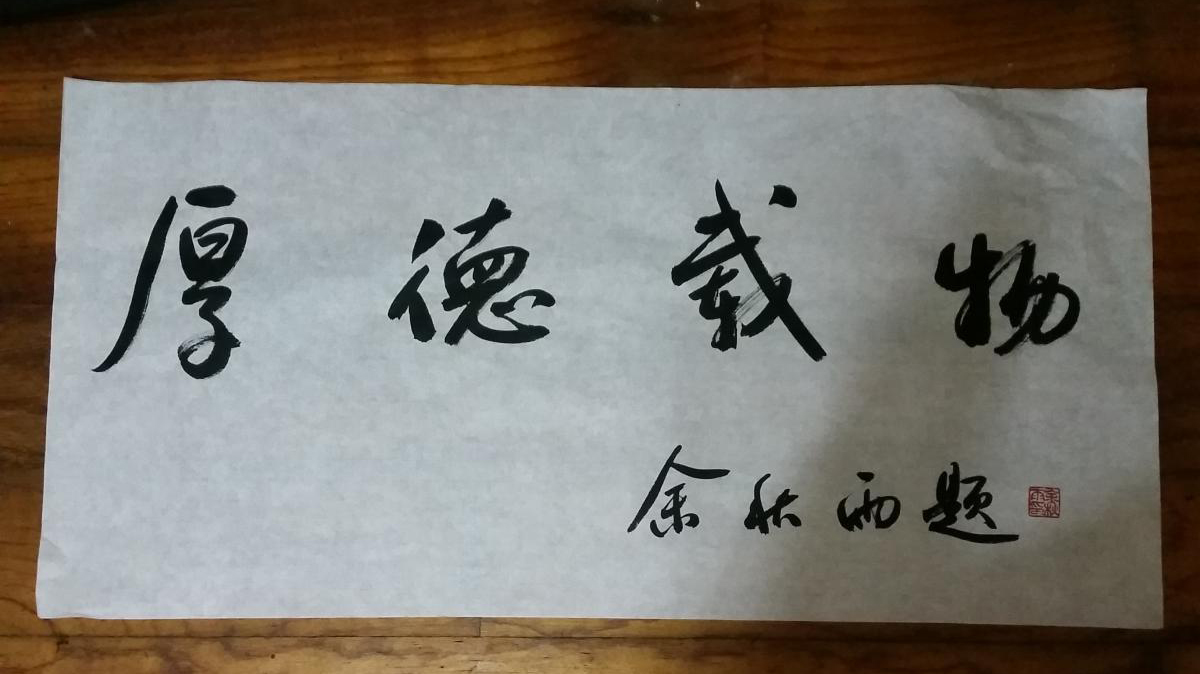 厚德载物
余秋雨题